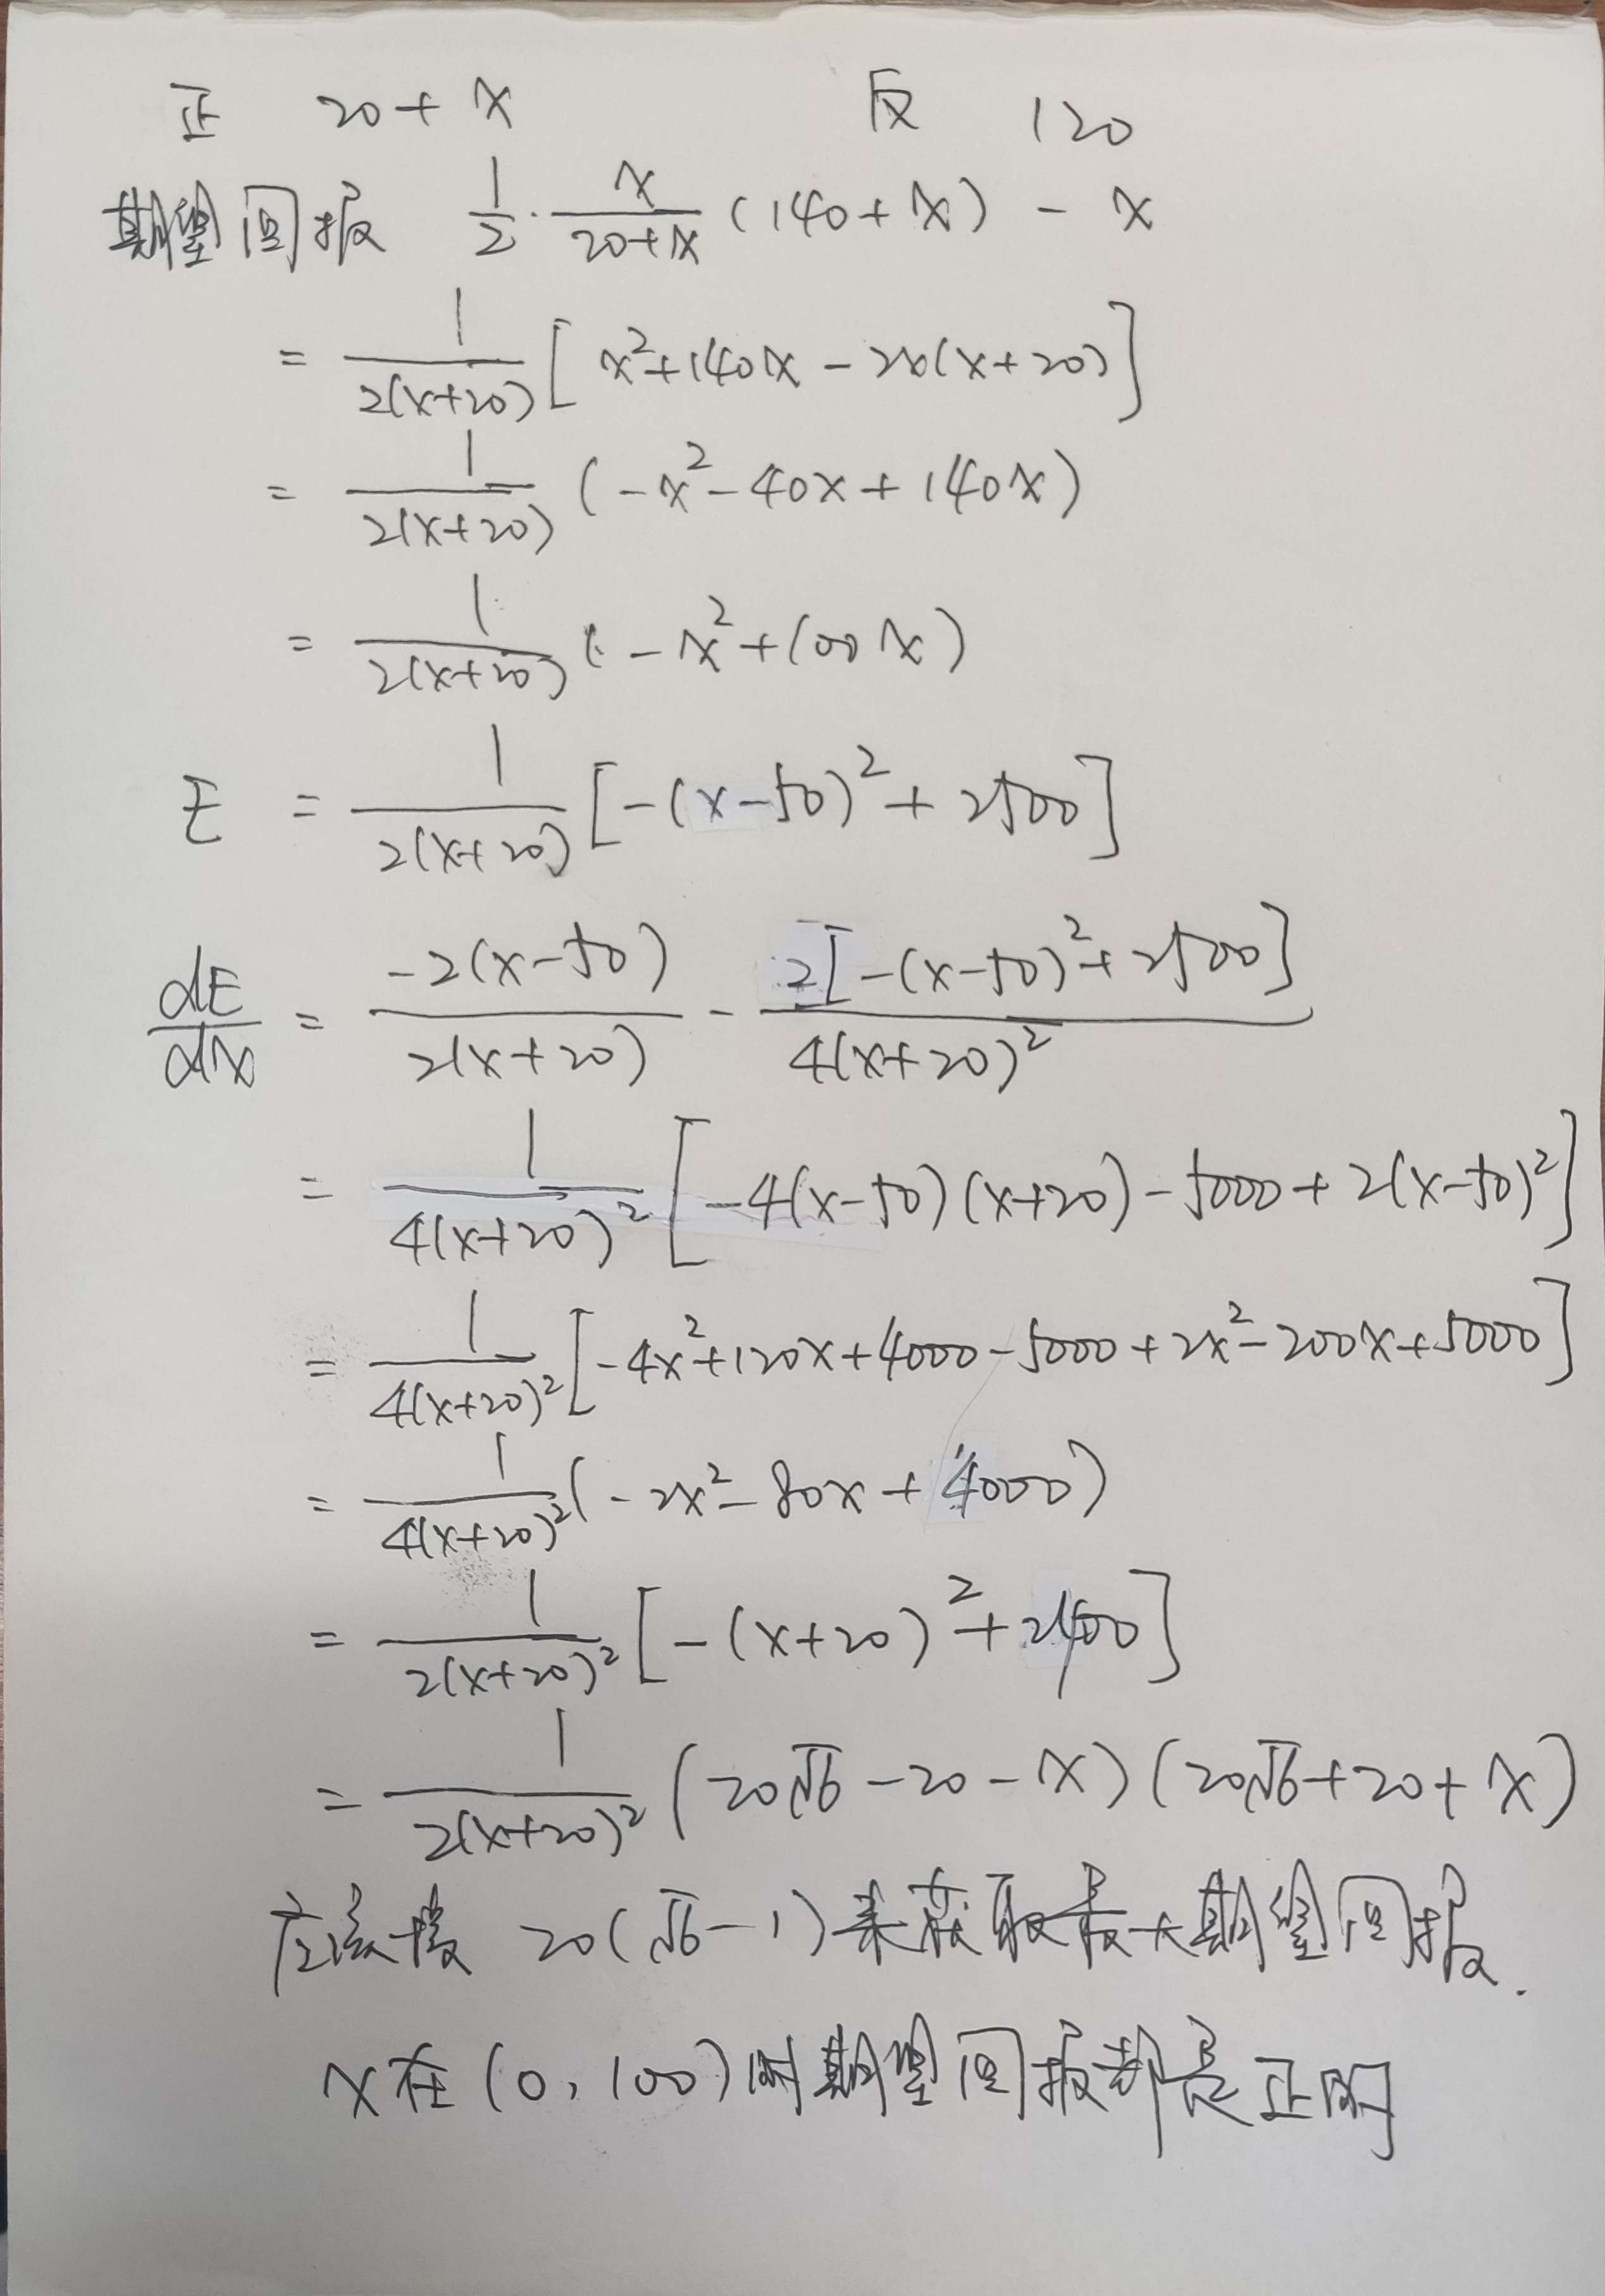 正 20+x 反 120
期望回报 1/2 · x/(20+x) (140+x) - x
= 1/(2(x+20)) [x²+140x-2x(x+20)]
= 1/(2(x+20)) (-x²-40x+140x)
= 1/(2(x+20)) (-x²+100x)
E = 1/(2(x+20)) [-(x-50)²+2500]
dE/dx = -2(x-50)/(2(x+20)) - 2[-(x-50)²+2500]/(4(x+20)²)
= 1/(4(x+20)²) [-4(x-50)(x+20)-5000+2(x-50)²]
= 1/(4(x+20)²) [-4x²+120x+4000-5000+2x²-200x+5000]
= 1/(4(x+20)²) (-2x²-80x+4000)
= 1/(2(x+20)²) [-(x+20)²+2400]
= 1/(2(x+20)²) (20√6-20-x)(20√6+20+x)
应该投 20(√6-1)来获取最大期望回报.
x在(0,100)时期望回报都是正的